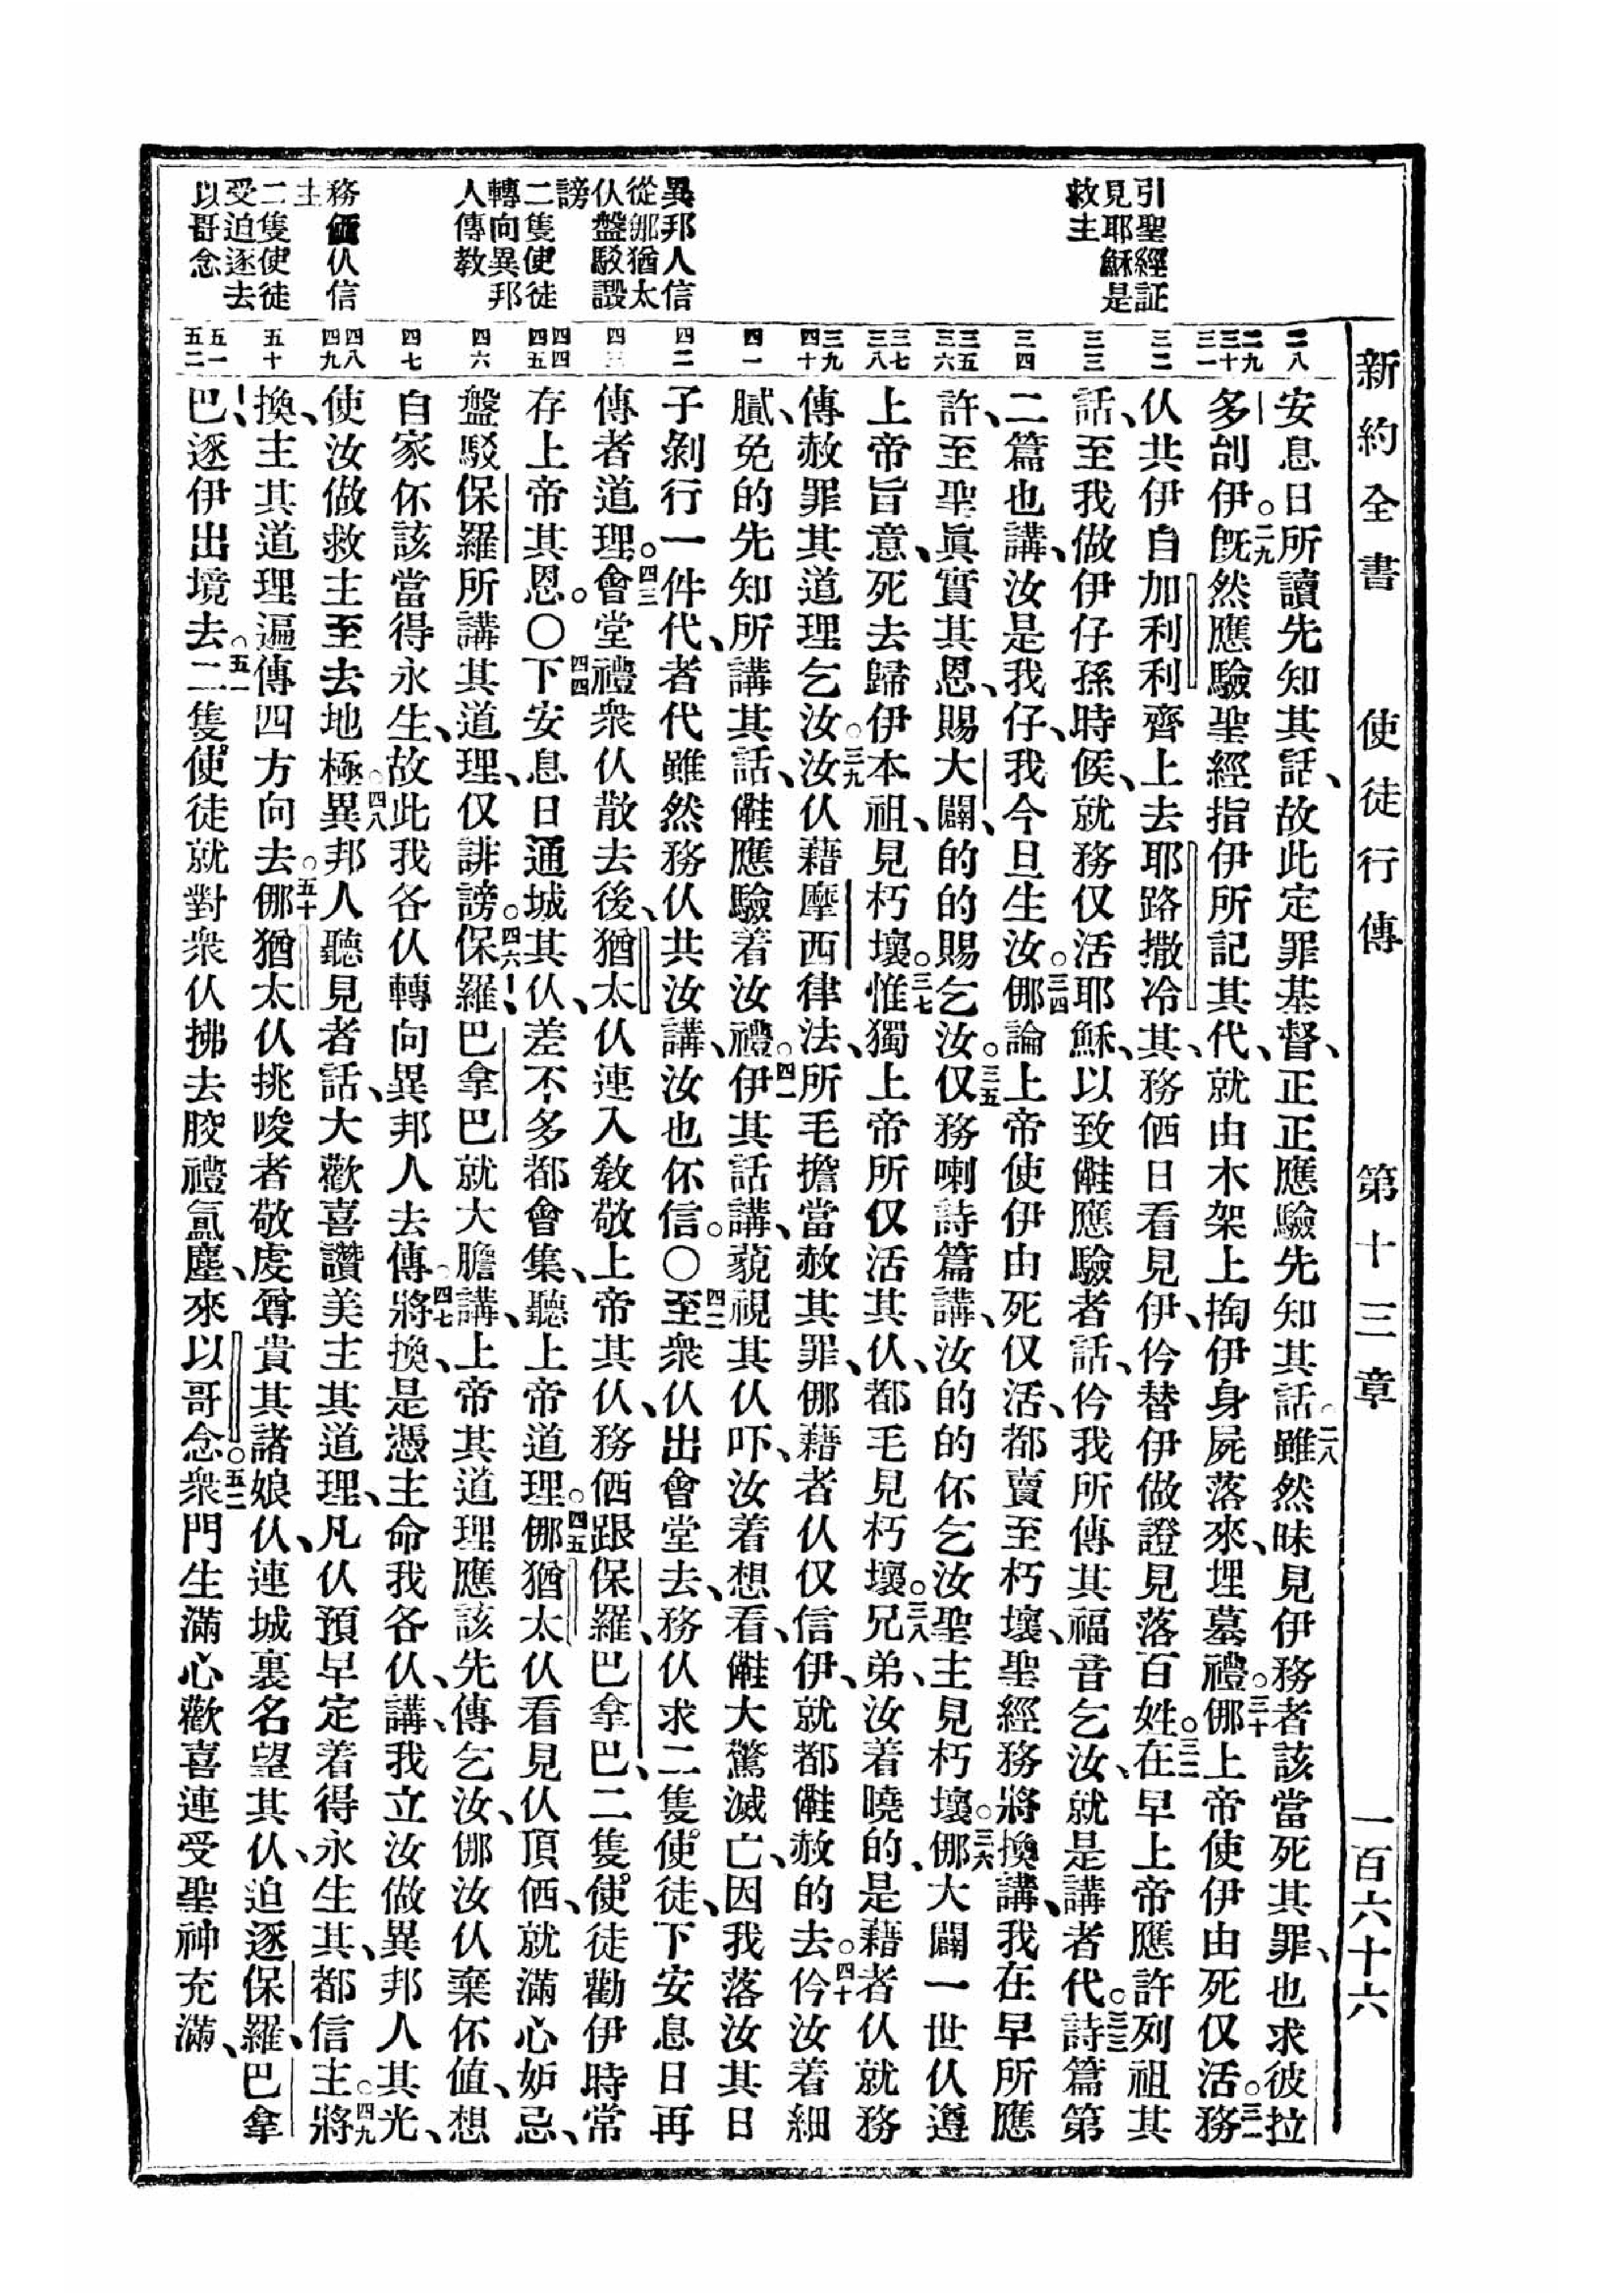 新約全書 使徒行傳 第十三章 一百六十六
引聖經証
見耶穌是
救主
異邦人信
從㑚猶太
仈盤駁譭
謗
二隻使徒
轉向異邦
人傳教
務価仈信
主
二隻使徒
受迫逐去
以哥念
二八
二九
三十
三一
三二
三三
三四
三五
三六
三七
三八
三九
四十
四一
四二
四三
四四
四五
四六
四七
四八
四九
五十
五一
五二
安息日所讀先知其話、故此定罪基督、正正應驗先知其話。二八雖然昧見伊務者該當死其罪、也求彼拉
多刣伊。二九旣然應驗聖經指伊所記其代、就由木架上掏伊身屍落來、埋墓禮。三十㑚上帝使伊由死仅活。三一務
仈共伊自加利利齊上去耶路撒冷其、務価日看見伊、仱替伊做證見落百姓。三二在早上帝應許列祖其
話、至我做伊仔孫時候、就務仅活耶穌、以致𣍐應驗者話、仱我所傳其福音乞汝、就是講者代。三三詩篇第
二篇也講、汝是我仔、我今旦生汝。三四㑚論上帝使伊由死仅活、都賣至朽壞、聖經務將換講、我在早所應
許、至聖眞實其恩、賜大闢、的的賜乞汝。三五汝仅務喇詩篇講、汝的的伓乞汝聖主見朽壞。三六㑚大闢一世仈遵
上帝旨意、死去歸伊本祖、見朽壞。三七惟獨上帝所仅活其仈、都毛見朽壞。三八兄弟、汝着曉的、是藉者仈就務
傳赦罪其道理乞汝。三九汝仈藉摩西律法、所毛擔當赦其罪、㑚藉者仈仅信伊、就都𣍐赦的去。四十仱汝着細
膩、免的先知所講其話、𣍐應驗着汝禮。四一伊其話講、藐視其仈吓、汝着想看、𣍐大驚滅亡、因我落汝其日
子剝行一件代、者代雖然務仈共汝講、汝也伓信。〇四二至衆仈出會堂去、務仈求二隻使徒、下安息日再
傳者道理。四三會堂禮衆仈散去後、猶太仈連入敎敬上帝其仈、務価跟保羅、巴拿巴、二隻使徒勸伊時常
存上帝其恩。〇四四下安息日通城其仈、差不多都會集、聽上帝道理。四五㑚猶太仈看見仈頂価、就滿心妒忌、
盤駁保羅所講其道理、仅誹謗。四六保羅、巴拿巴就大膽講、上帝其道理應該先傳乞汝、㑚汝仈棄伓値、想
自家伓該當得永生、故此我各仈轉向異邦人去傳。四七將換、是憑主命我各仈、講、我立汝做異邦人其光、
使汝做救主至去地極。四八異邦人聽見者話、大歡喜讚美主其道理、凡仈預早定着得永生其、都信主。四九將
換、主其道理遍傳四方向去。五十㑚猶太仈挑唆者敬虔尊貴其諸娘仈、連城裏名望其仈、迫逐保羅、巴拿
巴、逐伊出境去。五一二隻使徒就對衆仈拂去骹禮氲塵、來以哥念。五二衆門生滿心歡喜連受聖神充滿、